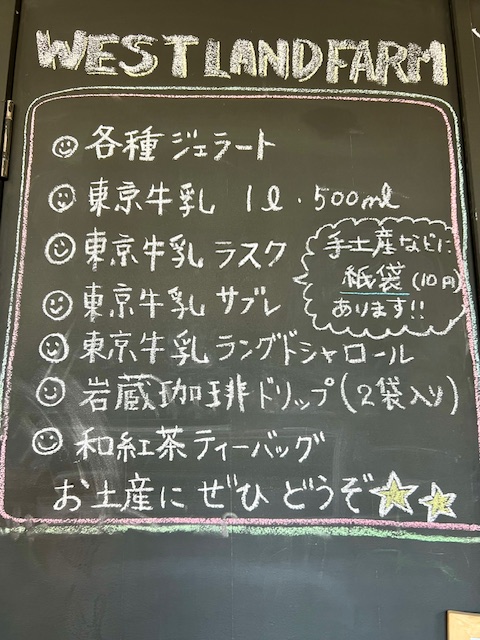 WEST LAND FARM
各種ジェラート
東京牛乳 1ℓ・500ml
東京牛乳ラスク
手土産などに
紙袋(10円)
あります!!
東京牛乳サブレ
東京牛乳ラングドシャロール
岩蔵珈琲ドリップ(2袋入り)
和紅茶ティーバッグ
お土産にぜひどうぞ